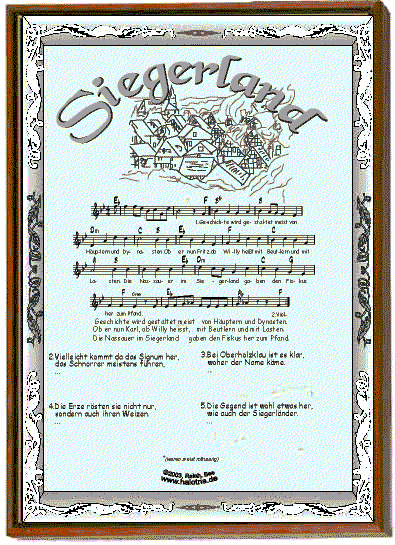 Siegerland
Eb F Bb B
1.Geschich-te wird ge- stal-tet meist von
Dm C B C Eb Dm B
Häuptern und Dy- nas- ten. Ob er nun Fritz, ob Wil-ly heißt mit Beut-lern und mit
A B Eb Dm C G
La- sten. Die Nas-sau- er im Sie- ger-land ga-ben den Fis-kus
F Eb F
her zum Pfand. 2.Viel-
Geschichte wird gestaltet meist von Häuptern und Dynasten.
Ob er nun Karl, ob Willy heisst, mit Beutlern und mit Lasten.
Die Nassauer im Siegerland gaben den Fiskus her zum Pfand.
2.Vielleicht kommt da das Signum her,
das Schnorrer meistens führen,
...
3.Bei Oberholzklau ist es klar,
woher der Name käme.
...
4.Die Erze rösten sie nicht nur,
sondern auch ihren Weizen.
...
5.Die Gegend ist wohl etwas her,
wie auch der Siegerländer.
...
©2003, Ralph, Bee
www.halotria.de